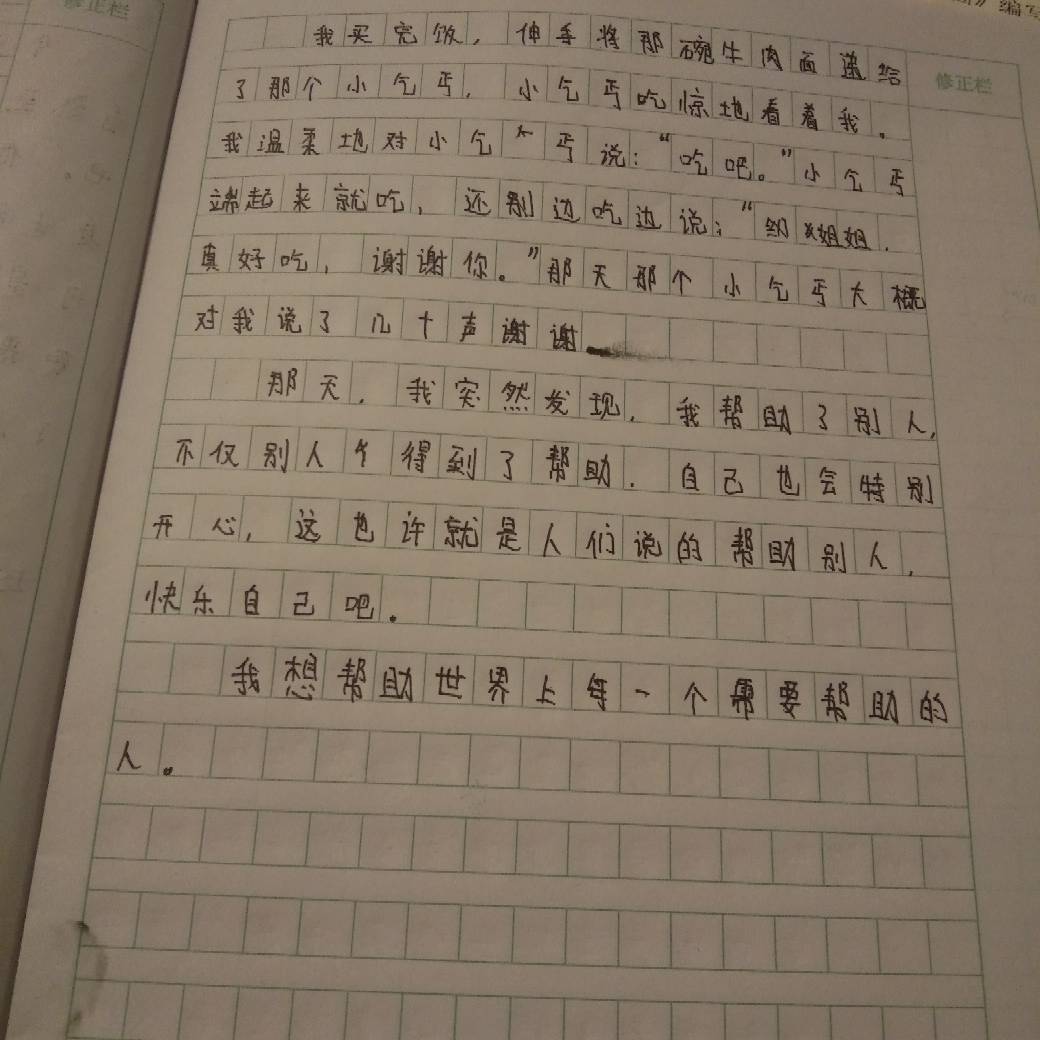 编写
修正栏
修正栏
我买完饭，伸手将那碗牛肉面递给
了那个小乞丐，小乞丐吃惊地看着我。
我温柔地对小乞丐说：“吃吧。”小乞丐
端起来就吃，还别边吃边说：“姐姐，
真好吃，谢谢你。”那天那个小乞丐大概
对我说了几十声谢谢
那天，我突然发现，我帮助了别人，
不仅别人得到了帮助，自己也会特别
开心，这也许就是人们说的帮助别人，
快乐自己吧。
我想帮助世界上每一个需要帮助的
人。